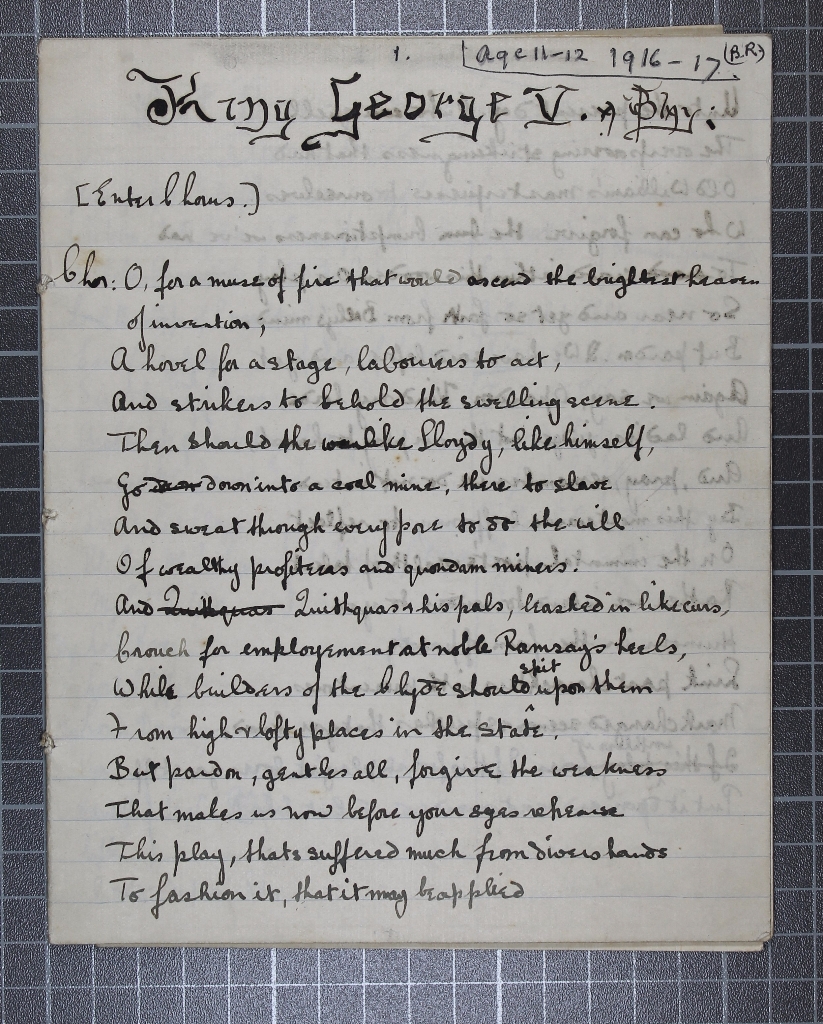 1. Age 11-12 1916-17 (B.R.)
King George V. A Play:
[Enter Chorus.]
Chor: O, for a muse of fire that would ascend the brightest heaven
of invention;
A hovel for a stage, labourers to act,
And strikers to behold the swelling scene.
Then should the warlike Lloydy, like himself,
Go down into a coal mine, there to slave
And sweat through every pore to do the will
Of wealthy profiteers and quondam miners.
And Quithquas Quithquas & his pals, leashed in like curs,
Crouch for employement at noble Ramsay's heels,
While builders of the Clyde should spit upon them
From high & lofty places in the State.
But pardon, gentles all, forgive the weakness
That makes us now before your eyes rehearse
This play, thats suffered much from divers hands
To fashion it, that it may be applied